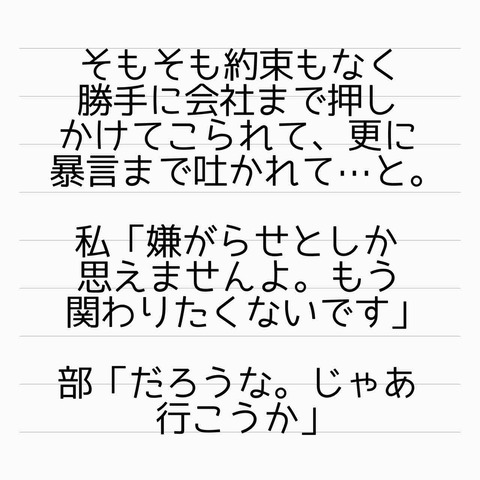 そもそも約束もなく
勝手に会社まで押し
かけてこられて、更に
暴言まで吐かれて…と。
私「嫌がらせとしか
思えませんよ。もう
関わりたくないです」
部「だろうな。じゃあ
行こうか」